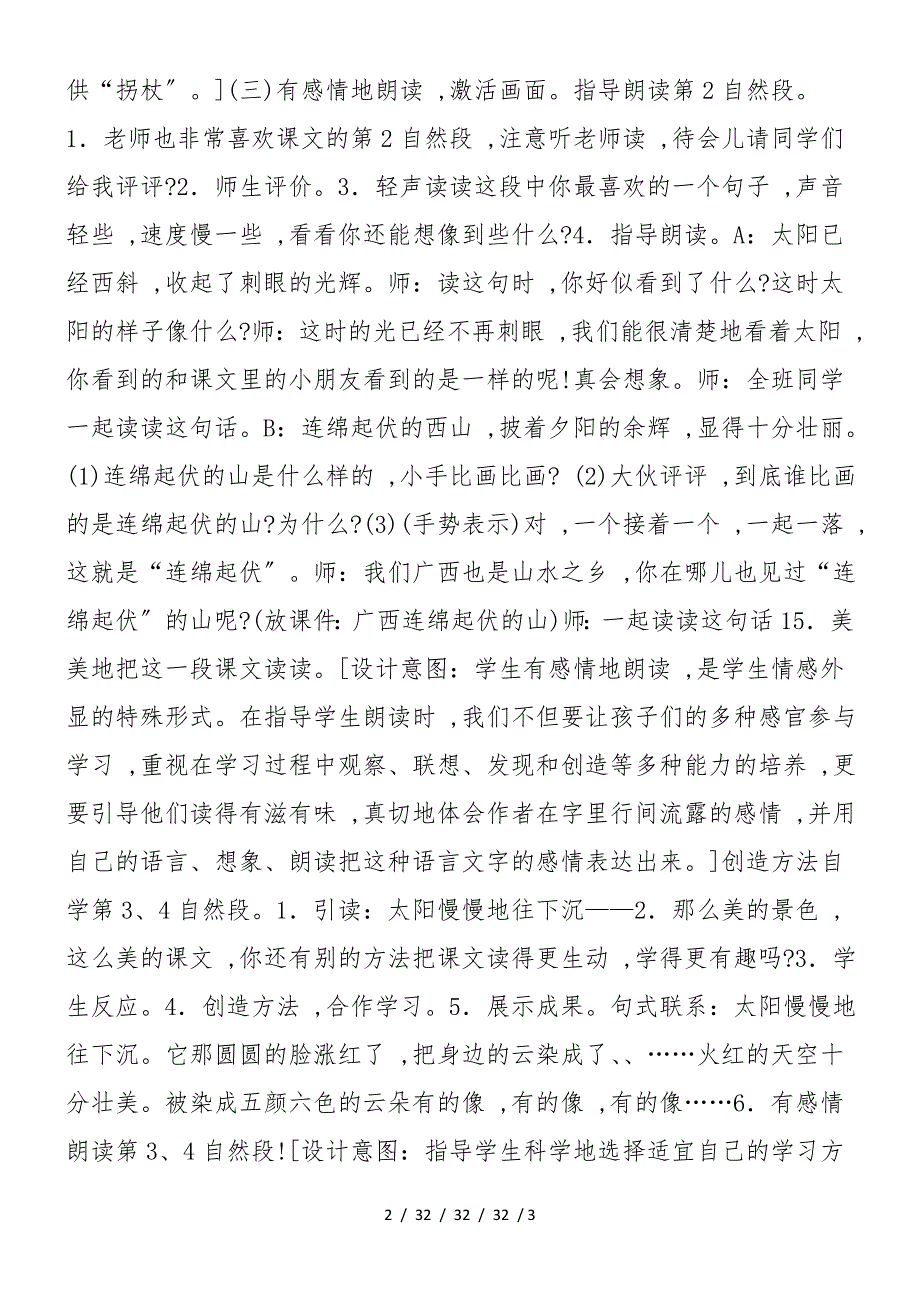 供“拐杖〞。](三)有感情地朗读 ,激活画面。指导朗读第2自然段。
1．老师也非常喜欢课文的第2自然段 ,注意听老师读 ,待会儿请同学们
给我评评?2．师生评价。3．轻声读读这段中你最喜欢的一个句子 ,声音
轻些 ,速度慢一些 ,看看你还能想像到些什么?4．指导朗读。A：太阳已
经西斜 ,收起了刺眼的光辉。师：读这句时 ,你好似看到了什么?这时太
阳的样子像什么?师：这时的光已经不再刺眼 ,我们能很清楚地看着太阳 ,
你看到的和课文里的小朋友看到的是一样的呢!真会想象。师：全班同学
一起读读这句话。B：连绵起伏的西山 ,披着夕阳的余辉 ,显得十分壮丽。
(1)连绵起伏的山是什么样的 ,小手比画比画? (2)大伙评评 ,到底谁比画
的是连绵起伏的山?为什么?(3)(手势表示)对 ,一个接着一个 ,一起一落 ,
这就是“连绵起伏〞。师：我们广西也是山水之乡 ,你在哪儿也见过“连
绵起伏〞的山呢?(放课件：广西连绵起伏的山)师：一起读读这句话15．美
美地把这一段课文读读。[设计意图：学生有感情地朗读 ,是学生情感外
显的特殊形式。在指导学生朗读时 ,我们不但要让孩子们的多种感官参与
学习 ,重视在学习过程中观察、联想、发现和创造等多种能力的培养 ,更
要引导他们读得有滋有味 ,真切地体会作者在字里行间流露的感情 ,并用
自己的语言、想象、朗读把这种语言文字的感情表达出来。]创造方法自
学第3、4自然段。1．引读：太阳慢慢地往下沉——2．那么美的景色 ,
这么美的课文 ,你还有别的方法把课文读得更生动 ,学得更有趣吗?3．学
生反应。4．创造方法 ,合作学习。5．展示成果。句式联系：太阳慢慢地
往下沉。它那圆圆的脸涨红了 ,把身边的云染成了、、……火红的天空十
分壮美。被染成五颜六色的云朵有的像 ,有的像 ,有的像……6．有感情
朗读第3、4自然段![设计意图：指导学生科学地选择适宜自己的学习方
2 / 32 / 32 / 32 / 3